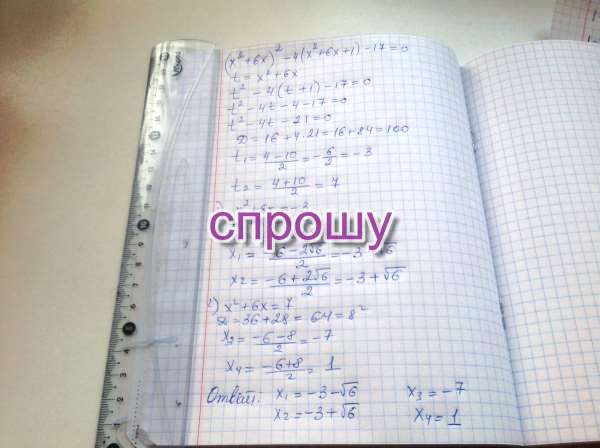 (x²+6x)² -4(x²+6x+1)-17=0
t = x²+6x
t² -4(t+1)-17=0
t² -4t -4 -17=0
t² -4t -21=0
D = 16+4·21=16+84=100
t₁ = (4-10)/2 = -6/2 = -3
t₂ = (4+10)/2 = 7
спрошу
x₁ = (-6-2√6)/2 = -3 √6
x₂ = (-6+2√6)/2 = -3+√6
x²+6x=7
D=36+28=64=8²
x₃ = (-6-8)/2 = -7
x₄ = (-6+8)/2 = 1
Ответ: x₁=-3-√6 x₃=-7
x₂=-3+√6 x₄=1